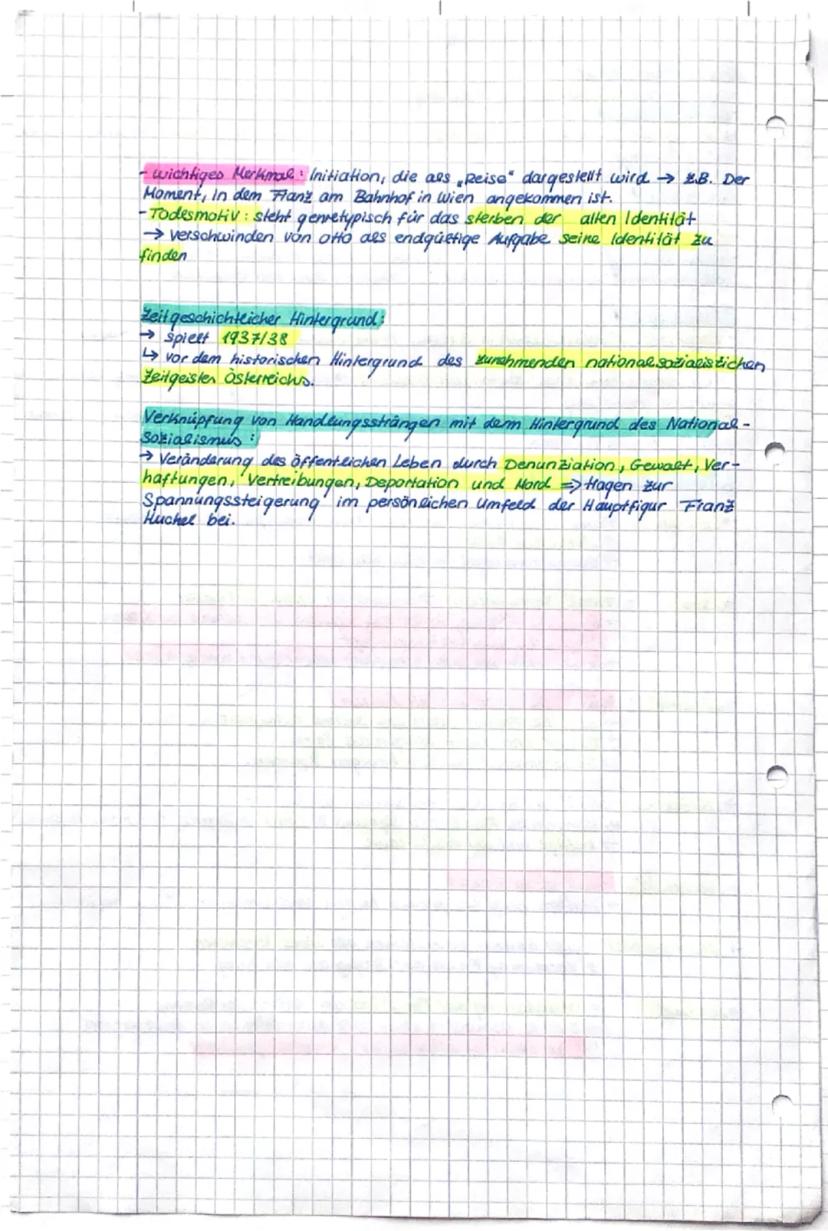 - wichtiges Merkmal: Initiation, die als „Reise" dargestellt wird → z.B. Der
Moment, in dem Franz am Bahnhof in Wien angekommen ist.
- Todesmotiv: steht genretypisch für das sterben der alten Identität
→ verschwinden von Otto als endgültige Aufgabe seine Identität zu
finden
Zeitgeschichtlicher Hintergrund:
→ spielt 1937/38
↳ vor dem historischen Hintergrund des zunehmenden nationalsozialistischen
Zeitgeistes Österreichs.
Verknüpfung von Handlungssträngen mit dem Hintergrund des National-
sozialismus:
→ Veränderung des öffentlichen Leben durch Denunziation, Gewalt, Ver-
haftungen, Vertreibungen, Deportation und Mord => tragen zur
Spannungssteigerung im persönlichen Umfeld der Hauptfigur Franz
Huchel bei.